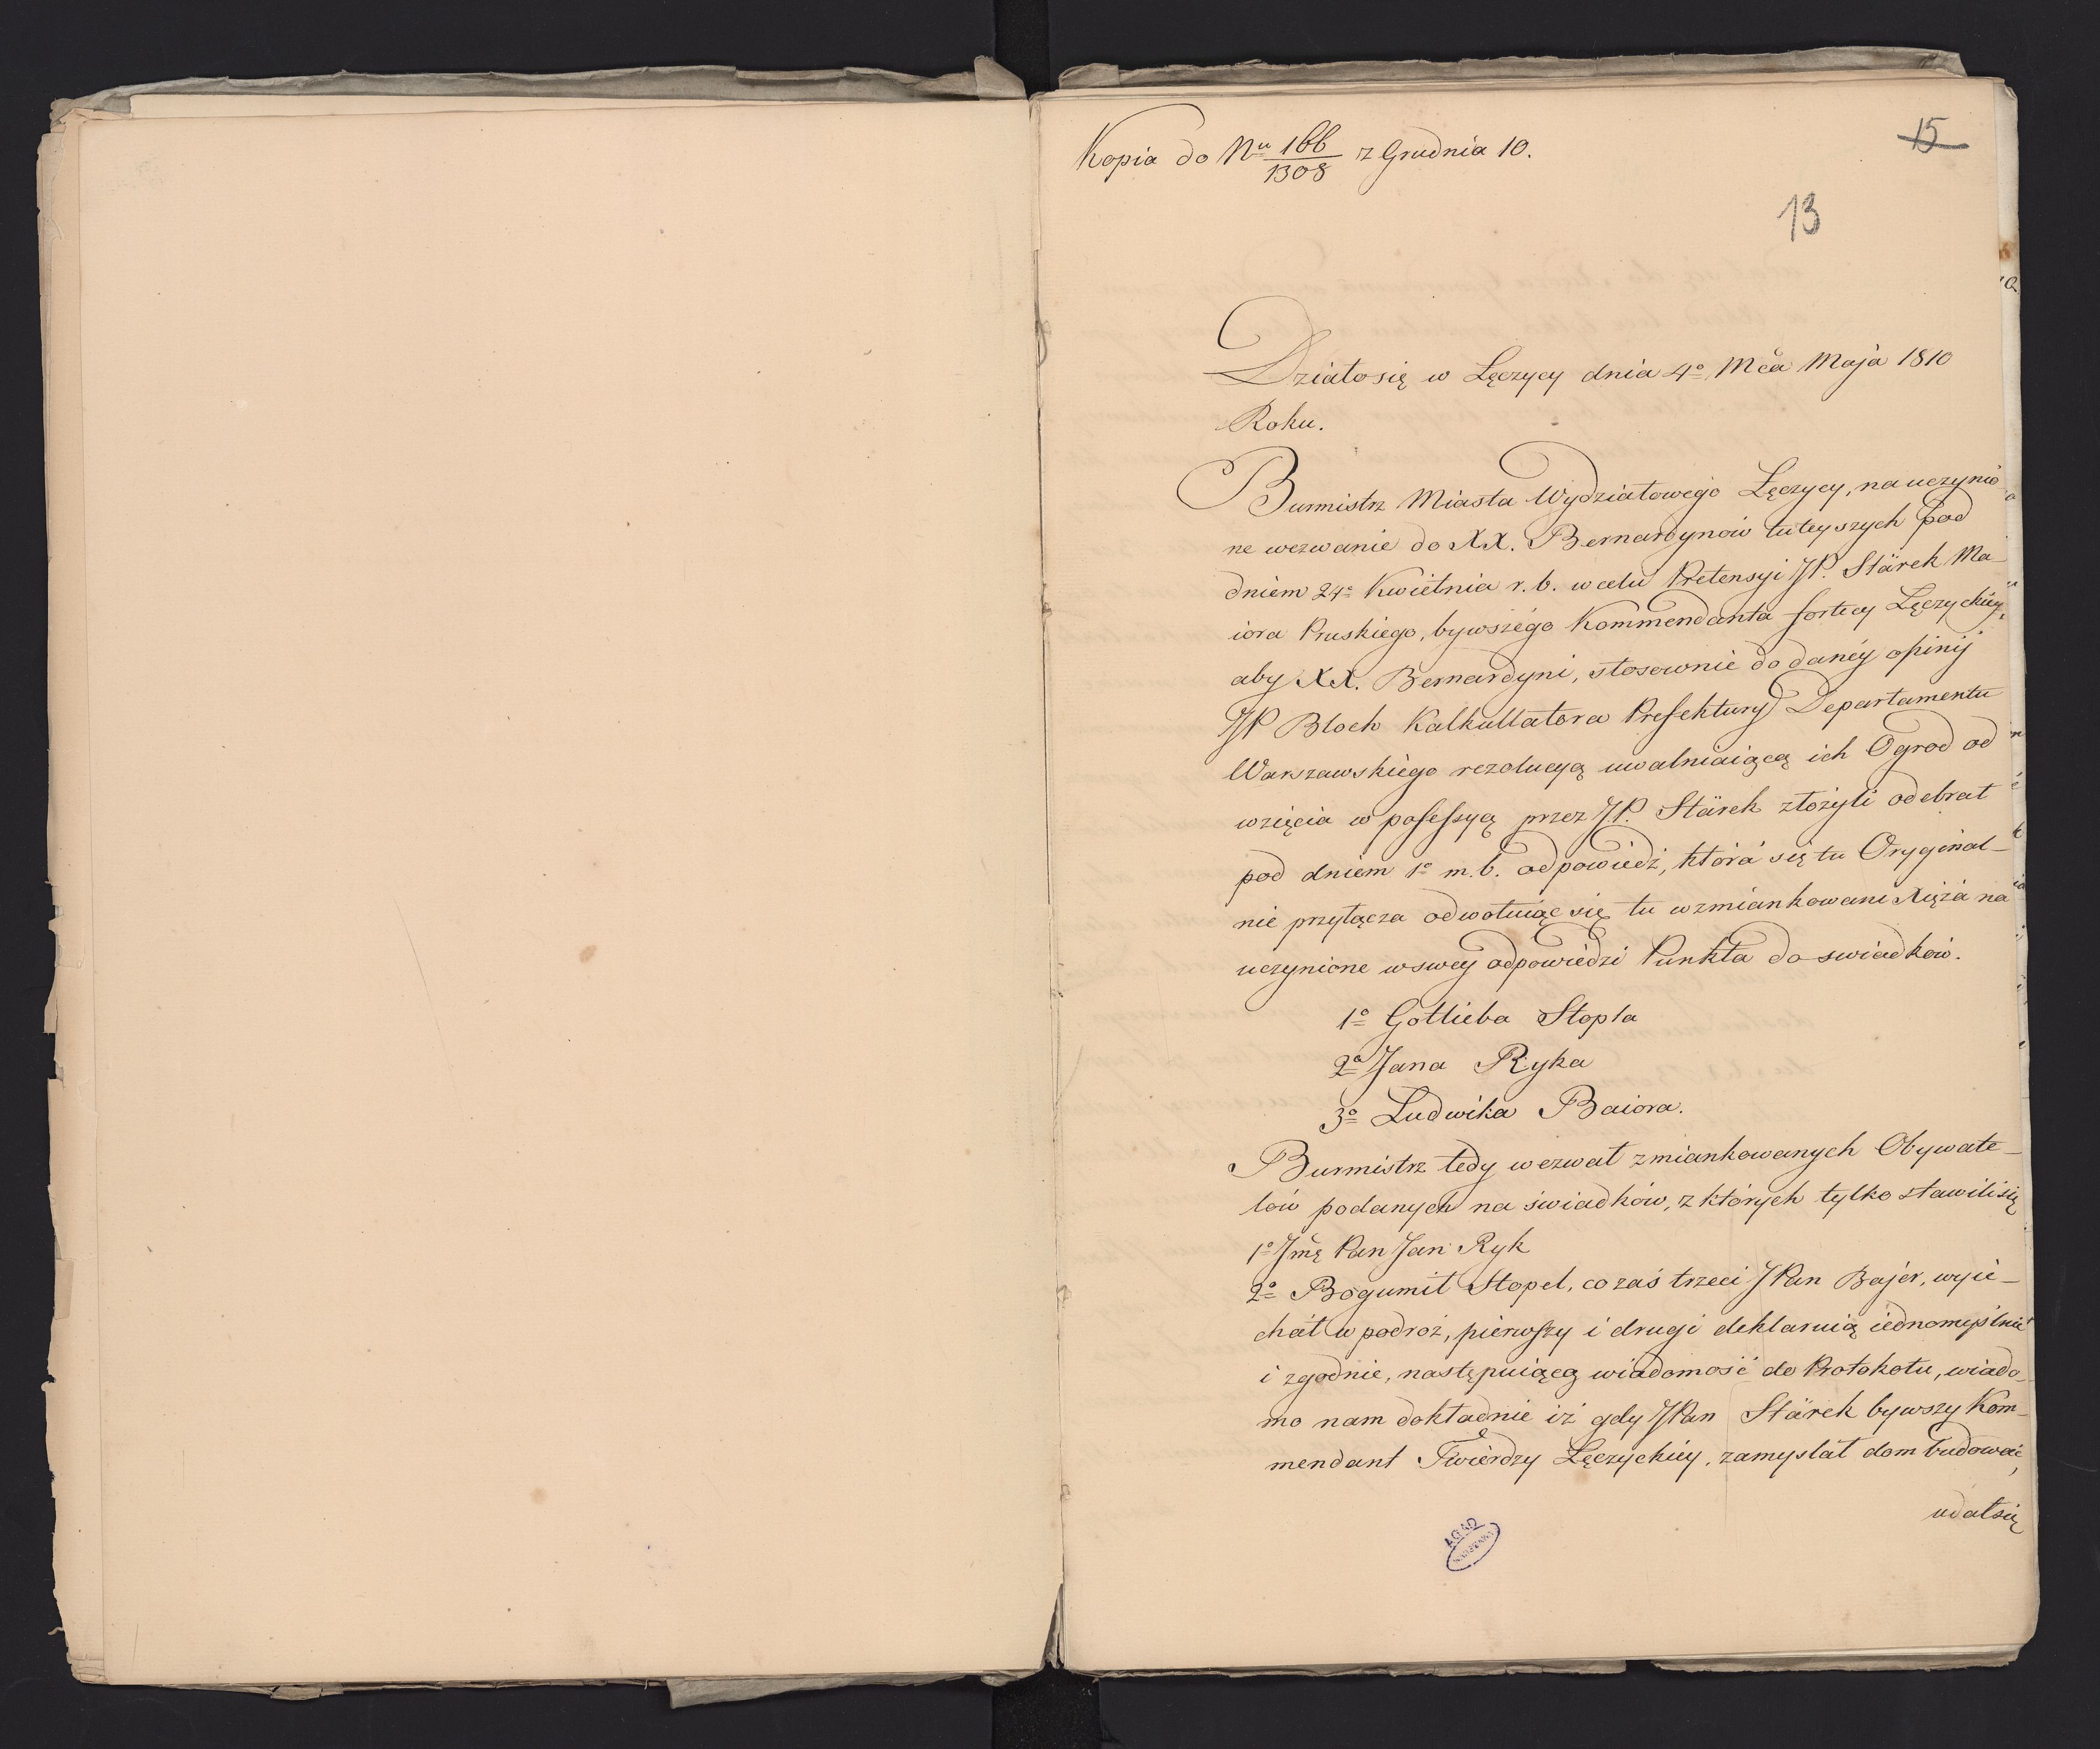 Kopia do Nu 166/1308 z Grudnia 10.
15
13
Działo się w Łęczycy dnia 4o Mca Maja 1810
Roku.
Burmistrz Miasta Wydziałowego Łęczycy, na uczynio-
ne wezwanie do XX. Bernardynow tuteyszych pod
dniem 24o Kwietnia r. b. w celu Pretensyi JP. Stärek Ma-
iora Pruskiego, bywszégo Kommendanta fortecy Łęczyckiey,
aby XX. Bernardyni, stosownie do danéy opinij
JP Bloch Kalkullatora Prefektury Departamentu
Warszawskiego rezolucyą uwalniaiącą ich Ogrod od
wzięcia w possessyą przez JP. Stärek złożyli odebrał
pod dniem 1o m. b. odpowiedź, która się tu Oryginal-
nie przyłącza odwołuiąc się tu wzmiankowani Xięża na
uczynione w swey odpowiedzi Punkta do swiadków.
1o Gottlieba Stopla
2o Jana Ryka
3o Ludwika Baiora.
Burmistrz tedy wezwał zmiankowanych Obywate-
lów podanych na świadków, z których tylko stawili się
1o Jmę Pan Jan Ryk
2o Bogumił Stopel, co zaś trzeci JPan Bajer, wyie-
chał w podroż, pierwszy i drugi deklaruią iednomyślnie
i zgodnie, następuiącą wiadomość do Protokołu, wiado-
mo nam dokładnie iż gdy JPan Stärek bywszy Kom-
mendant Twierdzy Łęczyckiey, zamyslał dom budować,
udał się
AGAD
WARSZAWA